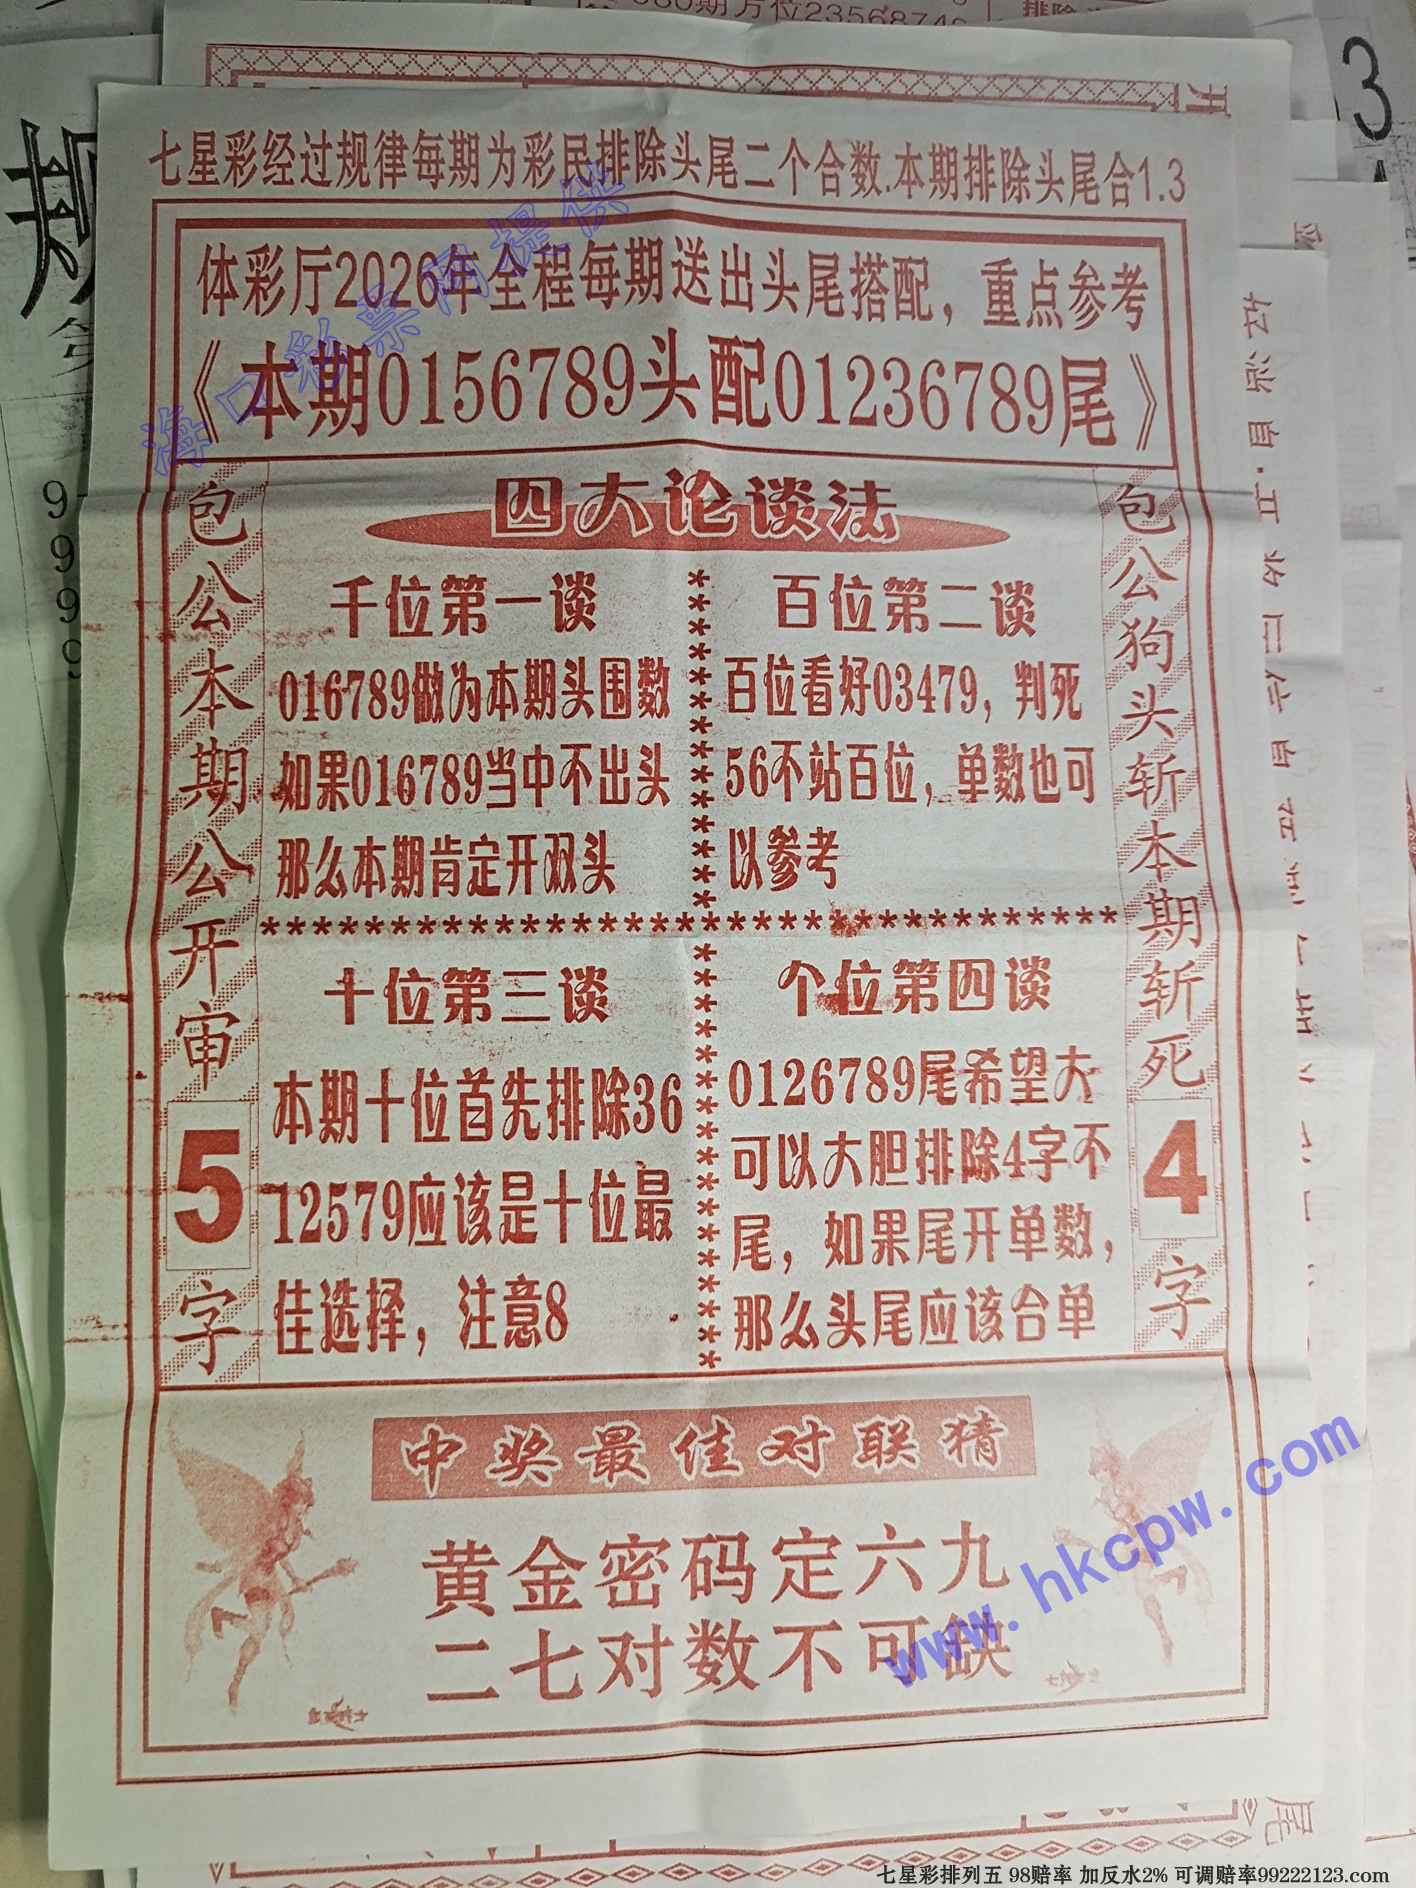 80期万位23568749
排除
开
3
七星彩经过规律每期为彩民排除头尾二个合数.本期排除头尾合1.3
体彩厅2026年全程每期送出头尾搭配，重点参考
《本期0156789头配01236789尾》
海口彩票网提供
包公本期公开审5字
四大论谈法
千位第一谈
016789做为本期头围数
如果016789当中不出头
那么本期肯定开双头
百位第二谈
百位看好03479，判死
56不站百位，单数也可
以参考
十位第三谈
本期十位首先排除36
12579应该是十位最
佳选择，注意8
个位第四谈
0126789尾希望大
可以大胆排除4字不
尾，如果尾开单数，
那么头尾应该合单
包公狗头斩本期斩死4字
中奖最佳对联猜
黄金密码定六九
二七对数不可缺
www.hkcpw.com
尾
七星彩排列五 98赔率 加反水2% 可调赔率99222123.com